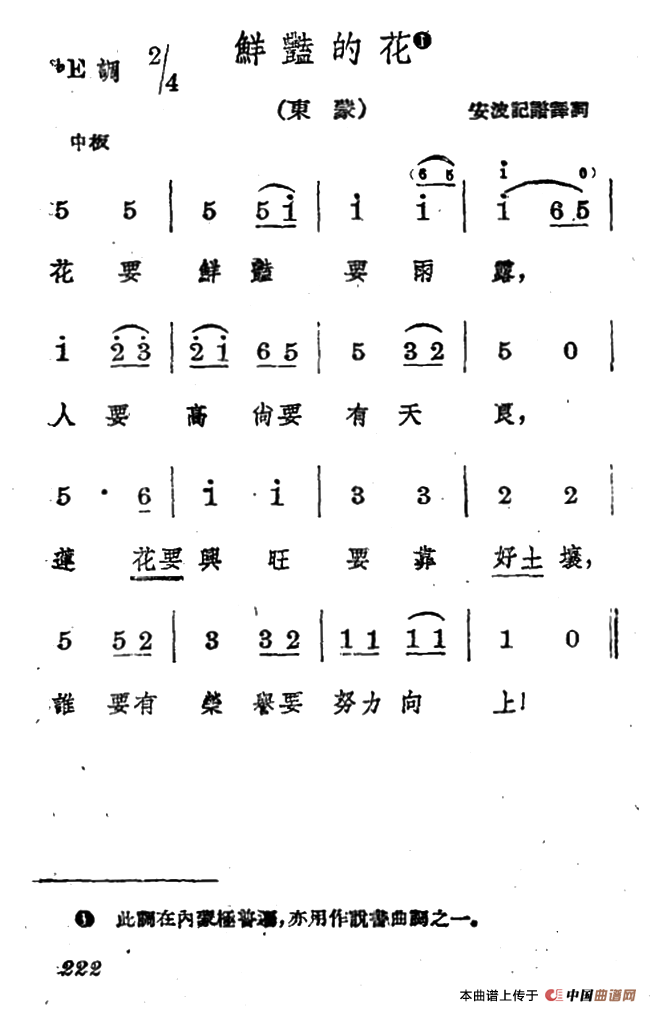 鮮豔的花❶
♭E調 2/4
（東蒙）
安波記譜譯詞
中板
(6 5 i 0)
5 5 | 5 5 i | i i | i 6 5 |
花 要 鮮 豔 要 雨 露，
i 2 3 | 2 i 6 5 | 5 3 2 | 5 0 |
人 要 高 尙要 有 天 良，
5 · 6 | i · i | 3 3 | 2 2 |
蓮 花要 興 旺 要 靠 好土 壤，
5 5 2 | 3 3 2 | 1 1 1 1 | 1 0 ‖
誰 要有 榮 譽要 努力 向 上！
❶ 此調在內蒙極普遍，亦用作說書曲調之一。
222
本曲谱上传于 中国曲谱网